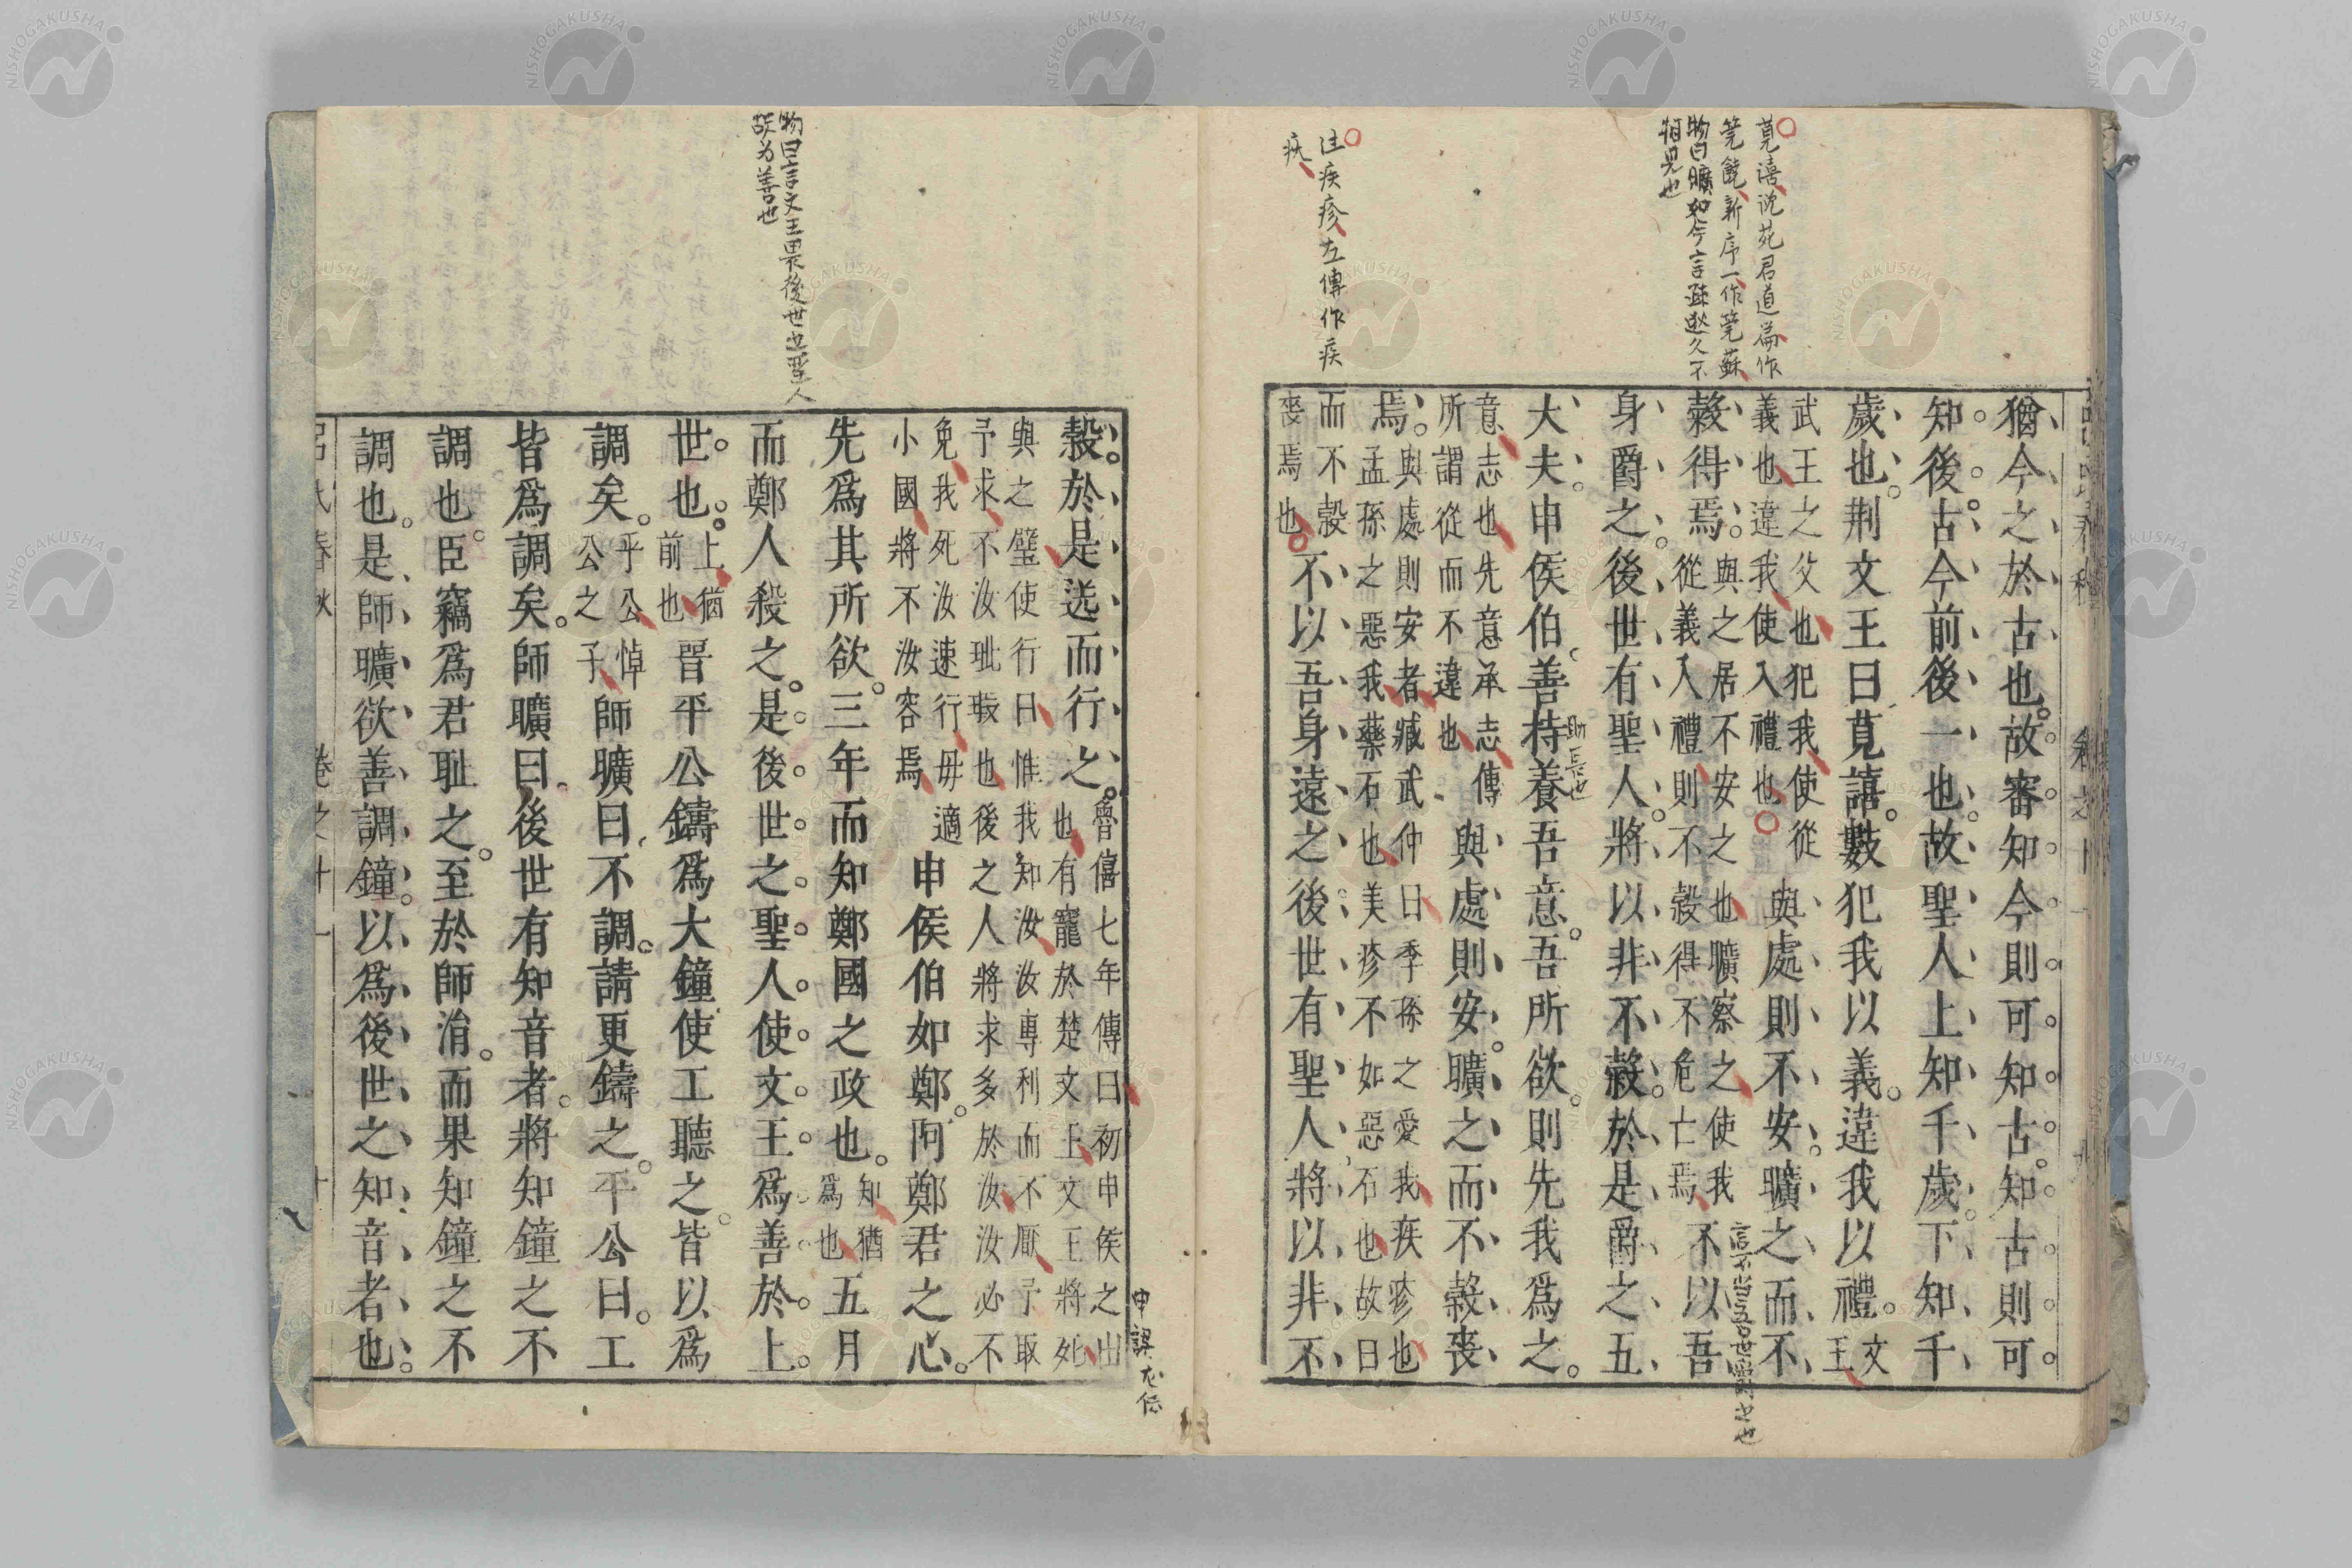 莧譆說苑君道篇作
筦饒新序一作筦蘇
物曰曠如今言踈逖久不
相見也
注疾疹左傳作疾
疢
猶今之於古也故審知今則可知古知古則可
知後古今前後一也故聖人上知千歲下知千
歲也荆文王曰莧譆數犯我以義違我以禮文
王
武王之父也犯我使從
義也違我使入禮也
與處則不安曠之而不
穀得焉
與之居不安之也曠察之使我
從義入禮則不穀得不危亡焉
不以吾
言不當吾世爵之也
身爵之後世有聖人將以非不穀於是爵之五
大夫申侯伯善持養吾意吾所欲則先我爲之
意志也先意承志傳
所謂從而不違也
與處則安曠之而不穀喪
焉
與處則安者臧武仲曰季孫之愛我疾疹也
孟孫之惡我藥石也美疹不如惡石也故曰
而不穀
喪焉也
不以吾身遠之後世有聖人將以非不
物曰言文王畏後世也聖人
故为善也
穀於是送而行之
魯僖七年傳曰初申侯之出
也有寵於楚文王文王將死
與之璧使行曰惟我知汝汝專利而不厭予取
予求不汝玼瑕也後之人將求多於汝汝必不
免我死汝速行毋適
小國將不汝容焉
申侯伯如鄭阿鄭君之心
先爲其所欲三年而知鄭國之政也
知猶
爲也
五月
而鄭人殺之是後世之聖人使文王爲善於上
世也
上猶
前也
晉平公鑄爲大鐘使工聽之皆以爲
調矣
平公悼
公之子
師曠曰不調請更鑄之平公曰工
皆爲調矣師曠曰後世有知音者將知鐘之不
調也臣竊爲君耻之至於師涓而果知鐘之不
調也是師曠欲善調鐘以爲後世之知音者也
呂氏春秋
卷之十一
十